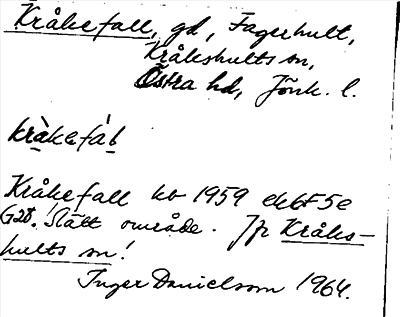 Kråkefall, gd, Fagerhult,
Kråkshults sn,
Östra hd, Jönk. l.
kràkefáł
Kråkefall kb 1959 ekbF5e
G28. Slätt område. Jfr Kråks-
hults sn!
Inger Danielsson 1964.